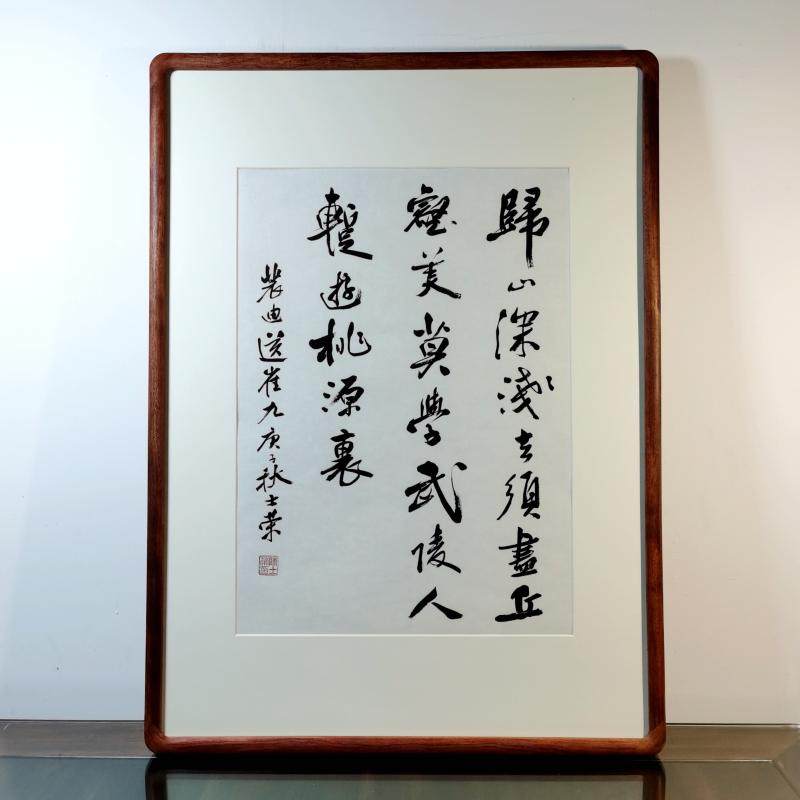 歸山深淺去須盡丘
壑美莫學武陵人
暫遊桃源裏
裴迪送崔九庚子秋士榮